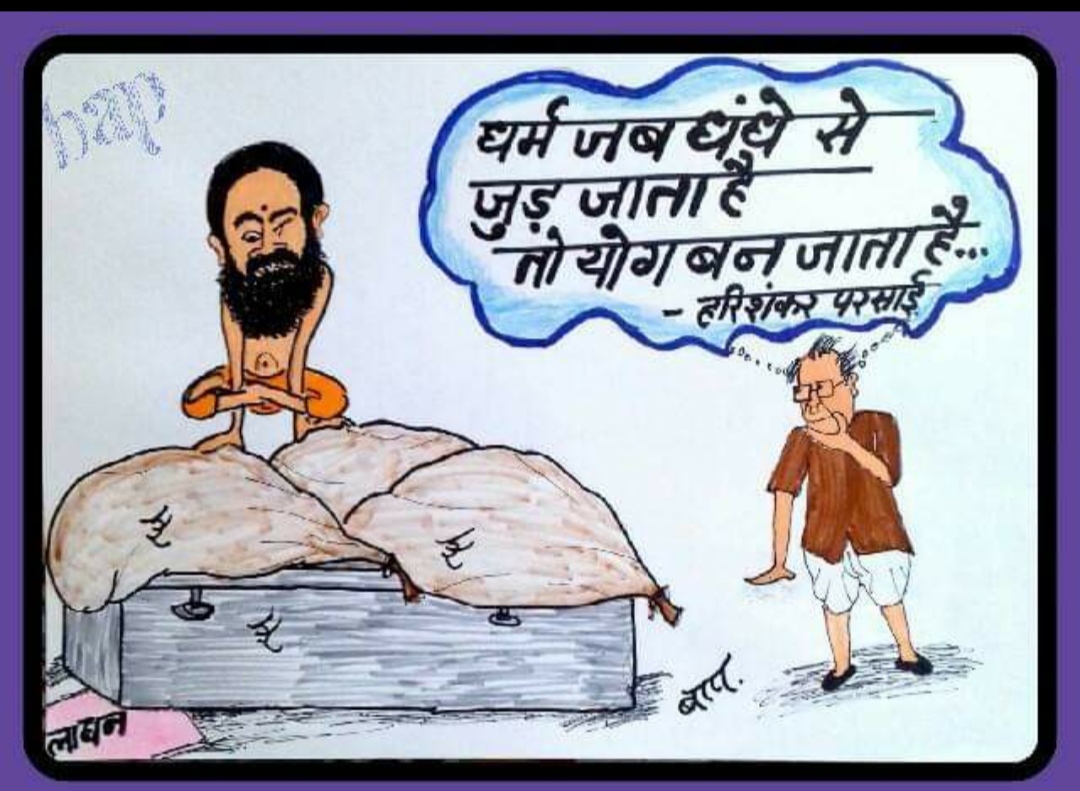 bap
धर्म जब धंधे से
जुड़ जाता है
तो योग बन जाता है...
- हरिशंकर परसाई
रु
रु
रु
बाप.
लाधन